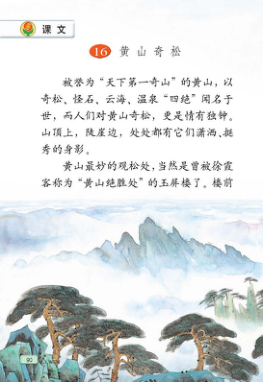 课文
16 黄山奇松
被誉为“天下第一奇山”的黄山，以
奇松、怪石、云海、温泉“四绝”闻名于
世，而人们对黄山奇松，更是情有独钟。
山顶上，陡崖边，处处都有它们潇洒、挺
秀的身影。
黄山最妙的观松处，当然是曾被徐霞
客称为“黄山绝胜处”的玉屏楼了。楼前
90